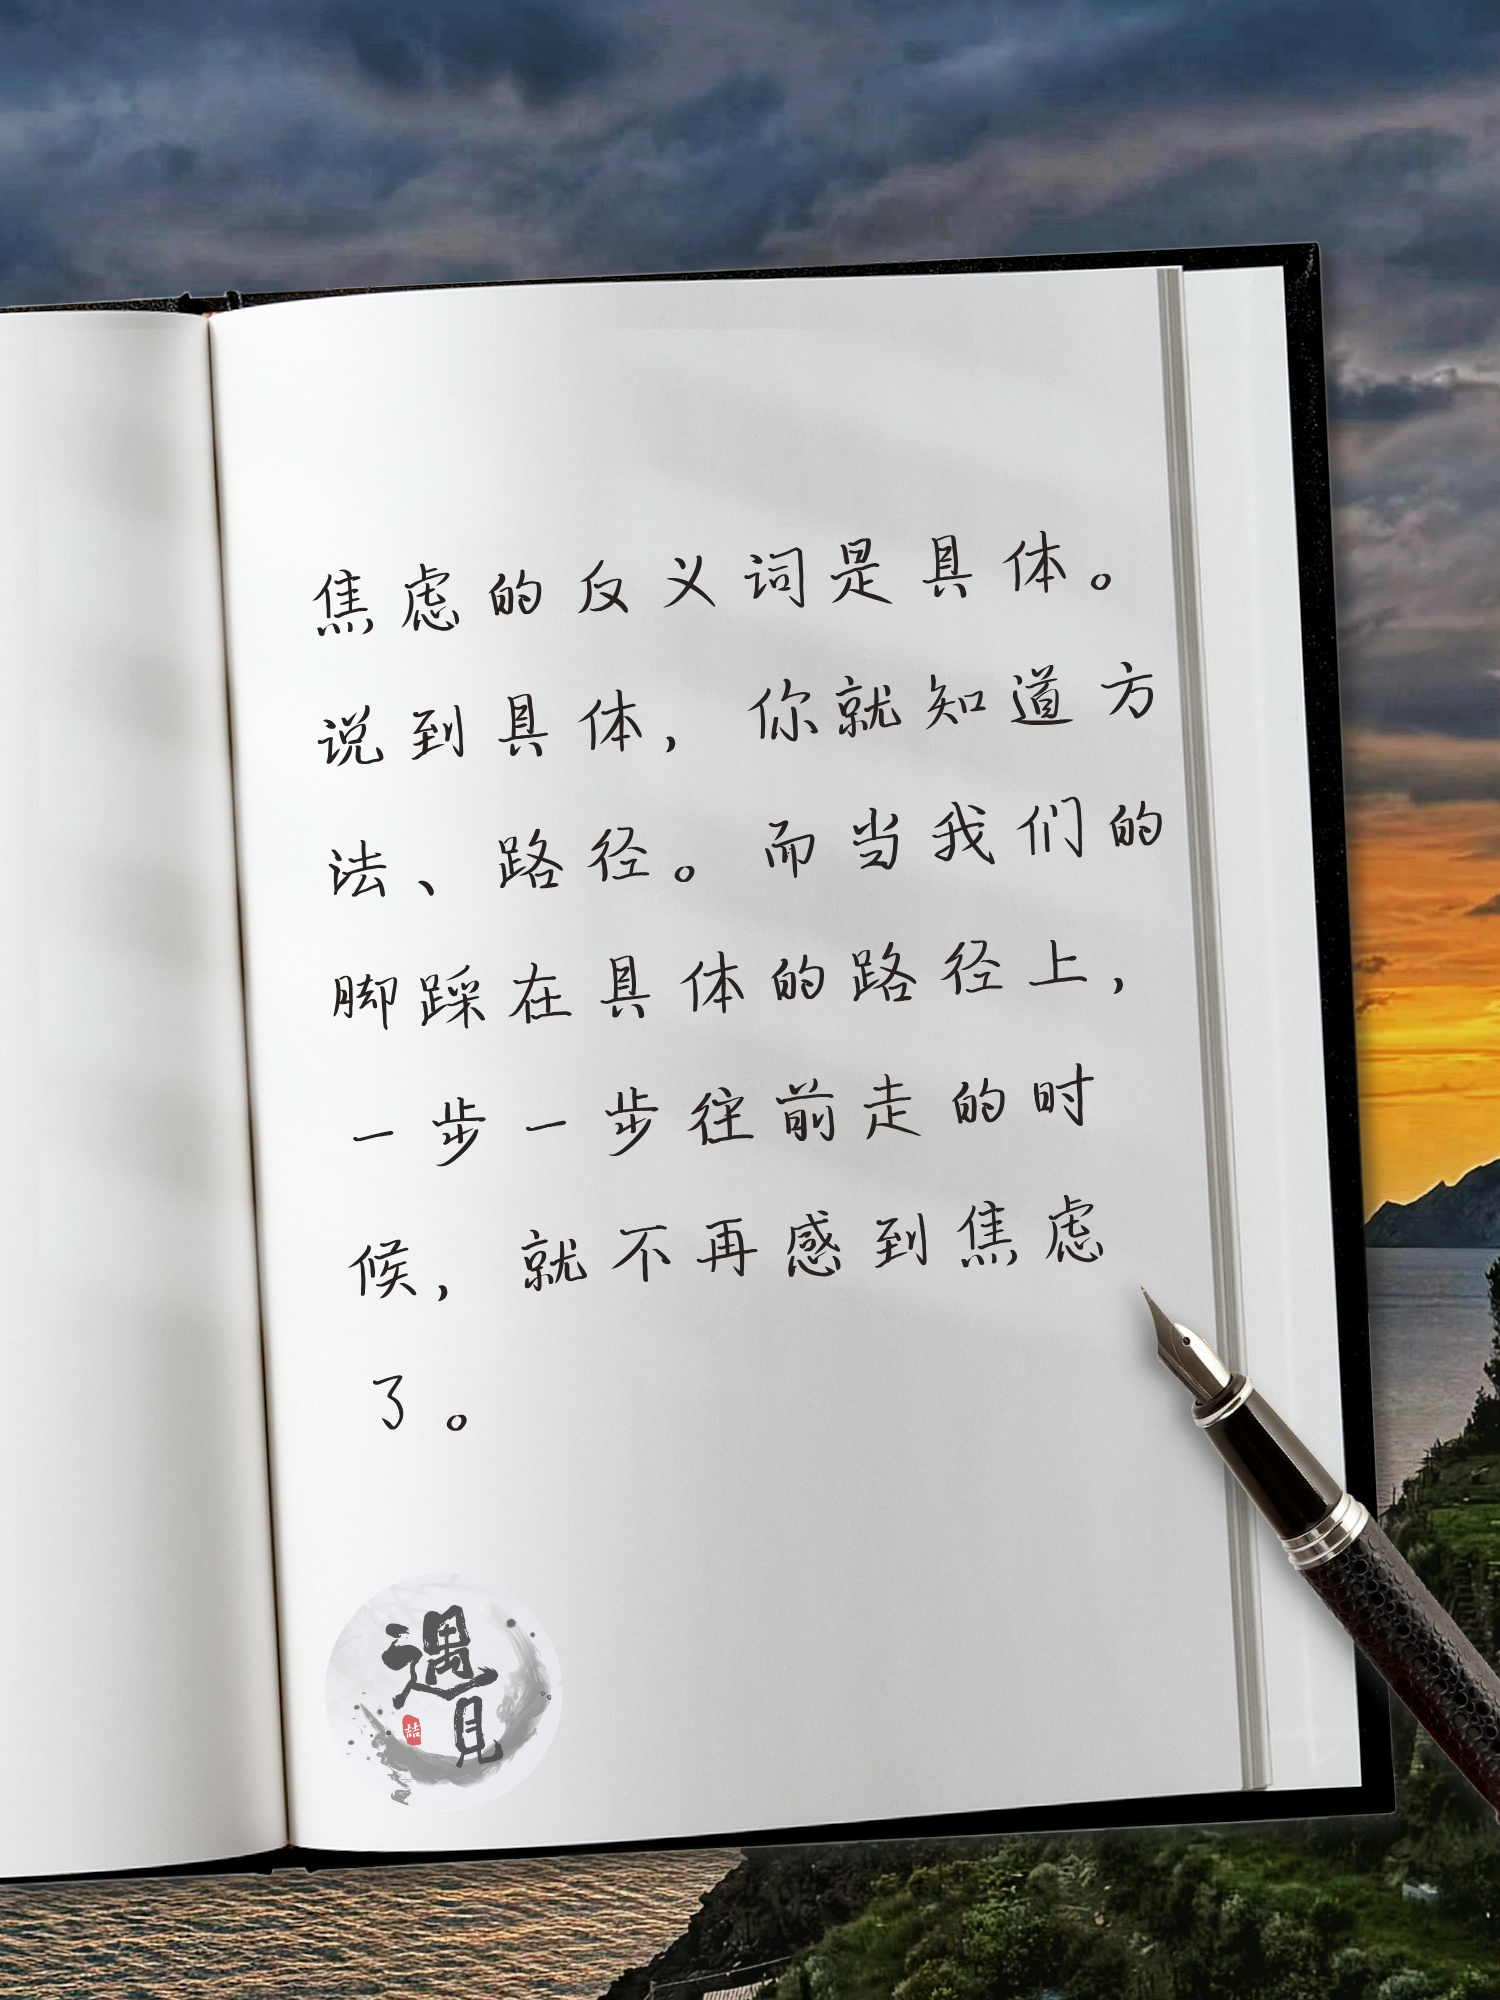 焦虑的反义词是具体。
说到具体，你就知道方
法、路径。而当我们的
脚踩在具体的路径上，
一步一步往前走的时
候，就不再感到焦虑
了。
遇
见
喆